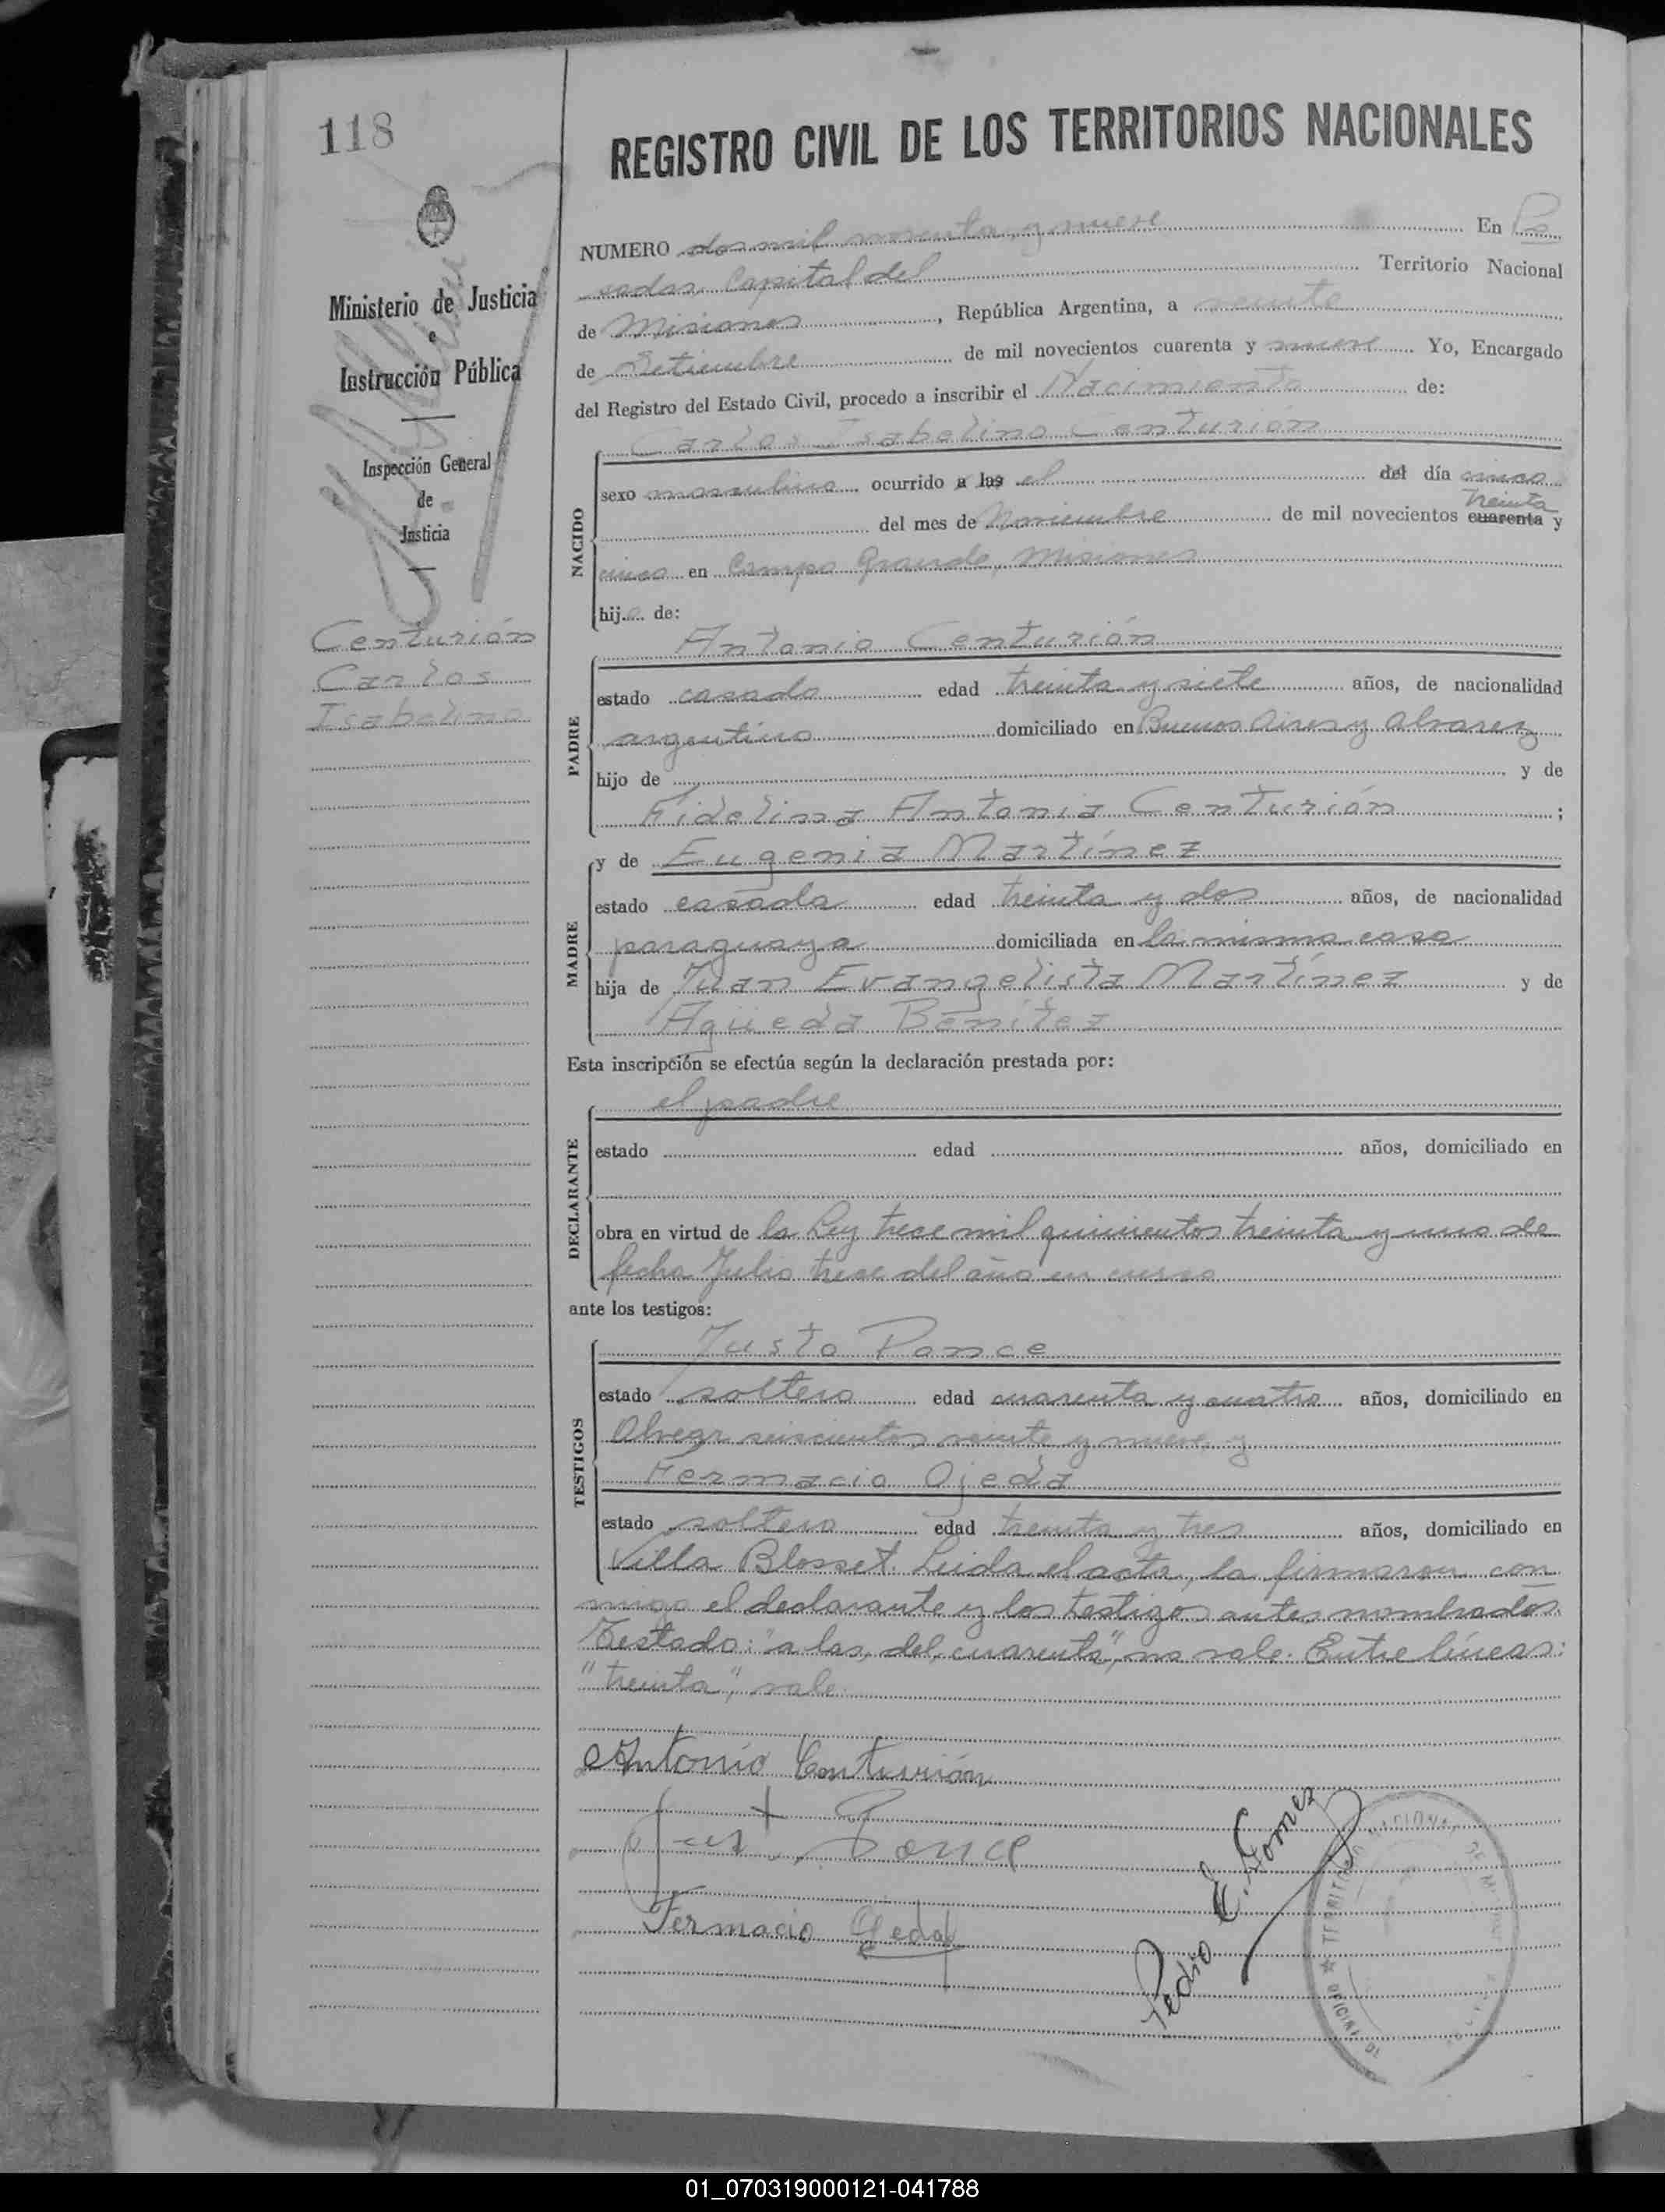 118
REGISTRO CIVIL DE LOS TERRITORIOS NACIONALES
Ministerio de Justicia
e
Instrucción Pública
Inspección General
de
Justicia
Centurión
Carlos
Isabelino
NUMERO dos mil noventa y nueve En Po
sadas Capital del Territorio Nacional
de Misiones, República Argentina, a veinte
de Setiembre de mil novecientos cuarenta y nueve Yo, Encargado
del Registro del Estado Civil, procedo a inscribir el Nacimiento de:
Carlos Isabelino Centurión
NACIDO
sexo masculino ocurrido a las el del día cinco
treinta
del mes de Noviembre de mil novecientos cuarenta y
cinco en Campo Grande, Misiones
hijo de:
PADRE
Antonio Centurión
estado casado edad treinta y siete años, de nacionalidad
argentino domiciliado en Buenos Aires y Alvarez
hijo de y de
Fidelina Antonia Centurión ;
MADRE
y de Eugenia Martínez
estado casada edad treinta y dos años, de nacionalidad
paraguaya domiciliada en la misma casa
hija de Juan Evangelista Martínez y de
Agueda Benítez
Esta inscripción se efectúa según la declaración prestada por:
DECLARANTE
el padre
estado edad años, domiciliado en
obra en virtud de la Ley trece mil quinientos treinta y uno de
fecha Julio trece del año en curso
ante los testigos:
TESTIGOS
Justo Ponce
estado soltero edad cuarenta y cuatro años, domiciliado en
Alvear seiscientos veinte y nueve y
Fermacio Ojeda
estado soltero edad treinta y tres años, domiciliado en
Villa Blosset. Leida el acta, la firmaron con
migo el declarante y los testigos antes nombrados.
Testado: "a las, del, cuarenta", no vale. Entre líneas:
"treinta", vale.
Antonio Centurión
Justo Ponce
Fermacio Ojeda
Pedro E. Gomez
01_070319000121-041788